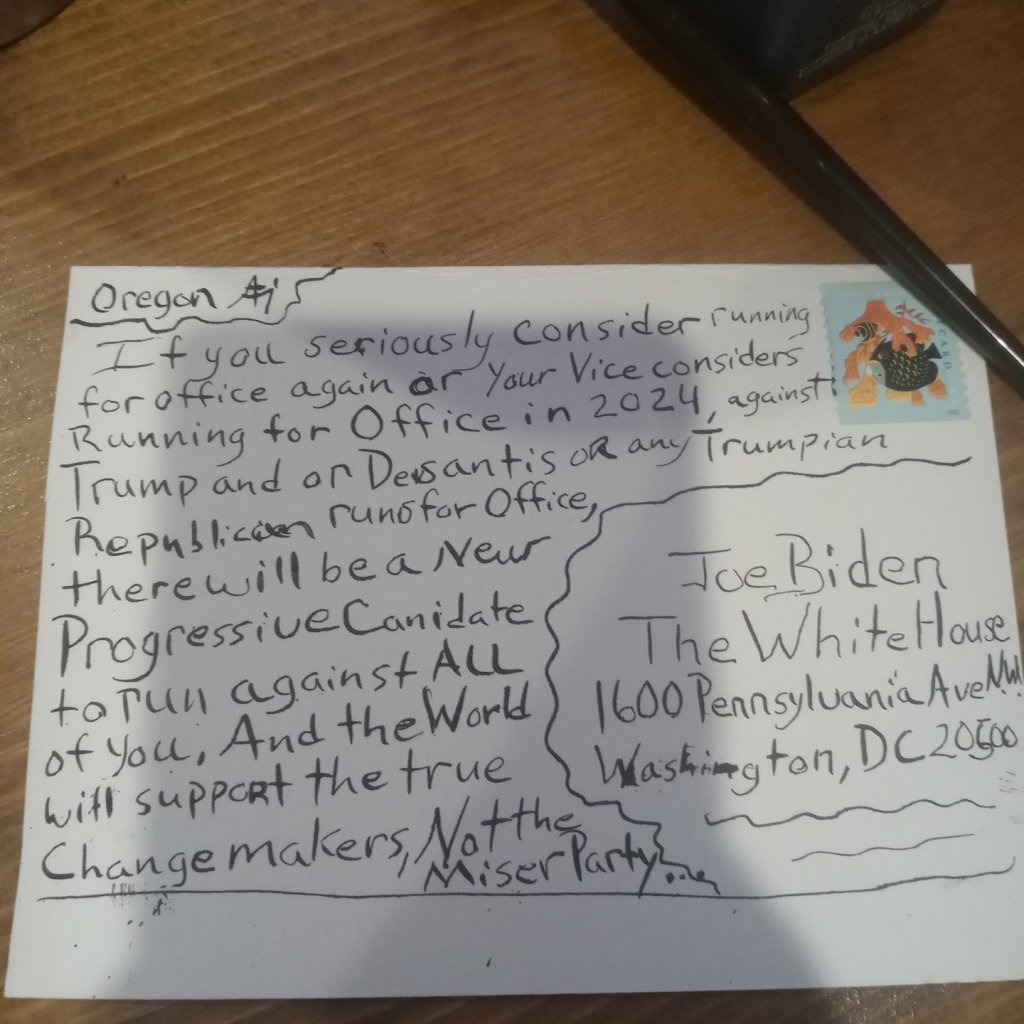 Oregon Ai
If you seriously consider running
for office again or Your Vice considers
Running for Office in 2024, against
Trump and or Desantis OR any Trumpian
Republican runs for Office,
there will be a New
Progressive Canidate
to run against ALL
of You, And the World
will support the true
Change makers, Not the
Miser Party...
Joe Biden
The White House
1600 Pennsylvania Ave NW
Washington, DC 20500
CARD